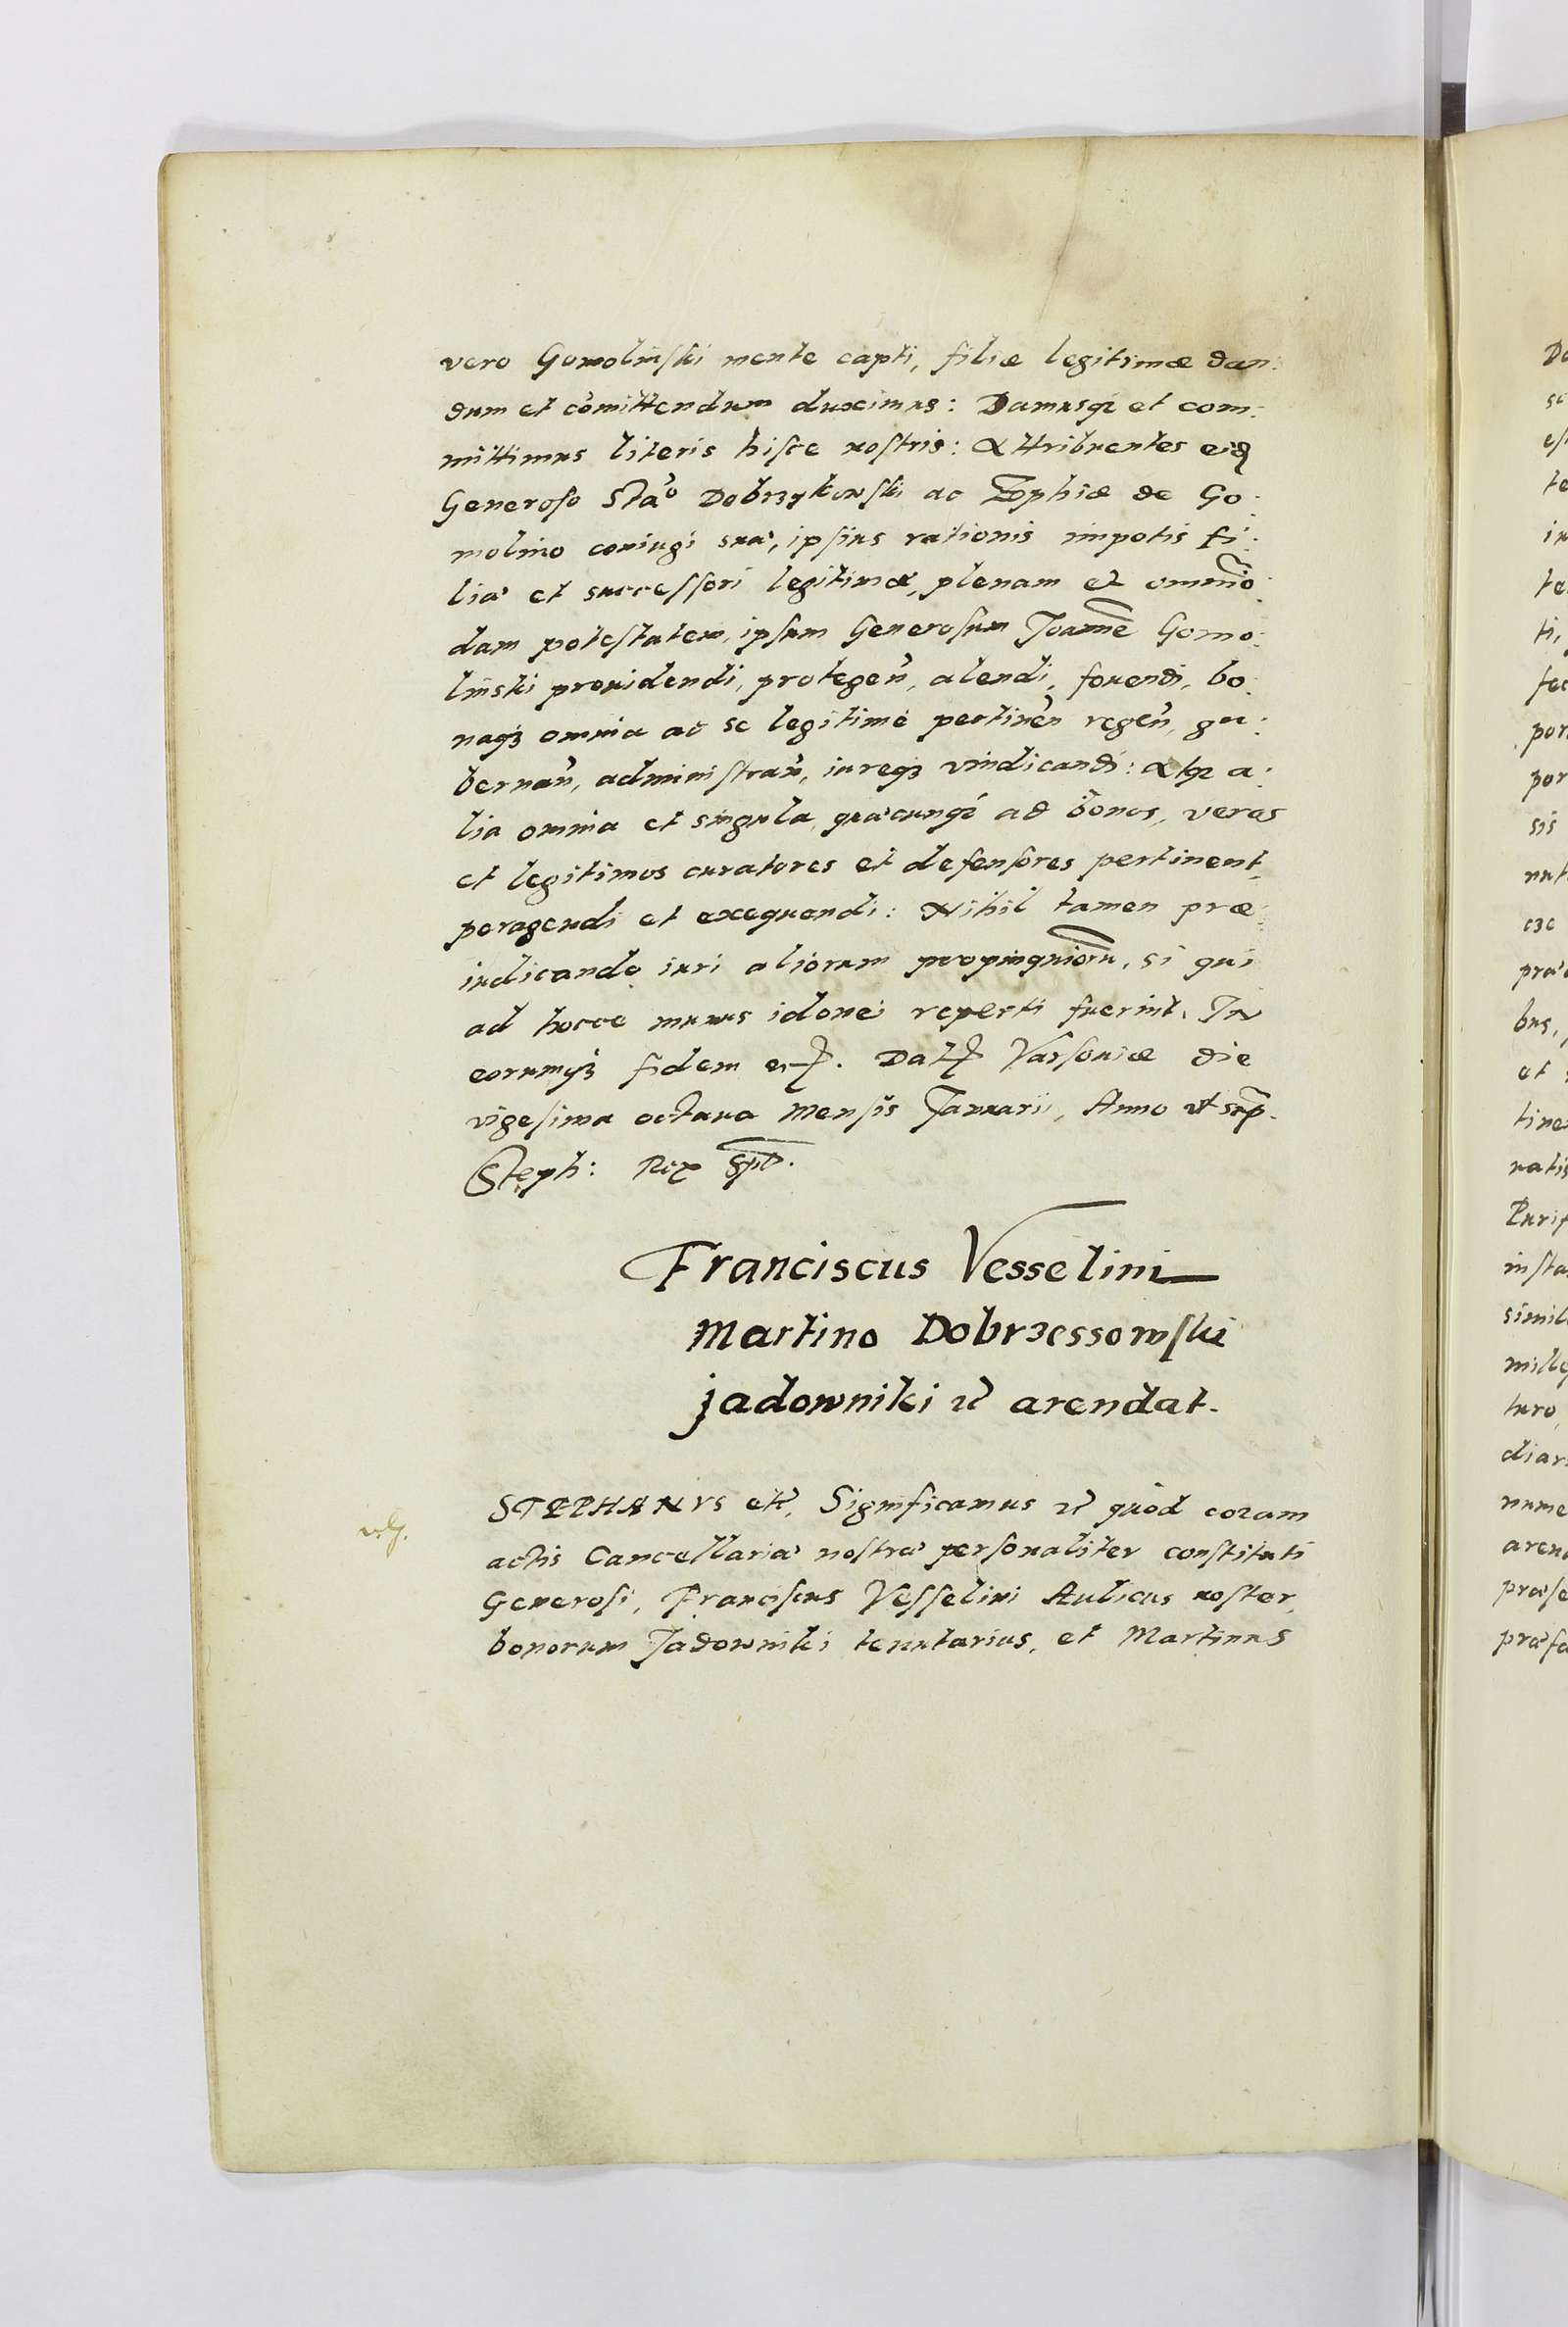 vero Gomolinski mente capti, filiæ legitimæ dan:
dum et cõmittendum duximus: Damusq₃ et com:
mittimus literis hisce nostris: Attribuentes eid
Generoso Stão Dobrzykowski ac Zophiæ de Go:
molino coniugi suæ, ipsius rationis impotis fi:
liæ et successori legitimæ, plenam et omnĩo:
dam potestatem, ipsum Generosum Joannẽ Gomo:
linski prouidendi, protegeñ, alendi, fouendi, bo:
naq₃ omnia ad se legitime pertineñ regeñ, gu:
bernañ, administrañ, iureq₃ vindicandi: Atq₃ a:
lia omnia et singula, quæcunq₃ ad bonos, veros
et legitimos curatores et defensores pertinent,
peragendi et exequendi: Nihil tamen præ:
iudicando iuri aliorum propinquiorũ, si qui
ad hocce munus idonei reperti fuerint. In
eorumq₃ fidem etc. Dat Varsouiæ die
vigesima octaua mensis Januarii, Anno ut sup̃.
Steph: Rex sp̃t.
Franciscus Vesselini
Martino Dobrzessowski
jadowniki etc arendat.
STEPHANVS etc, Significamus etc quod coram
actis Cancellariæ nostræ personaliter constituti
Generosi, Franciscus Vesselini Aulicus noster,
bonorum Jadowniki tenutarius, et Martinus